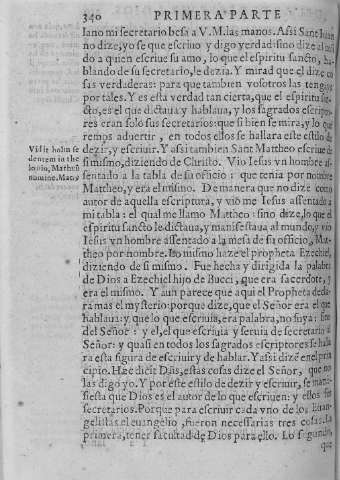 340 PRIMERA PARTE
lano mi secretario besa a V.M. las manos. Assi Sant Iuan
no dize, yo se que escriuo y digo verdad: sino dize al modo
do a quien escriue su amo, lo que el espiritu sancto, ha-
blando de su secretario, le dezia. Y mirad que el dize co
sas verduderas: para que tambien vosotros las tengays
por tales. Y es esta verdad tan cierta, que el espiritu san-
cto, es el que dictaua y hablaua, y los sagrados escripto-
res eran solo sus secretarios: que si bien se mira, y lo que
remos aduertir, en todos ellos se hallara este estilo de
dezir, y escriuir. Y assi tambien Sant Mattheo escriue de
si mismo, diziendo de Christo. Vio Iesus vn hombre as-
sentado a la tabla de su officio: que tenia por nombre
Mattheo, y era el mismo. De manera que no dize como
autor de aquella escriptura, y vio me Iesus assentado a
mi tabla: el qual me llamo Mattheo: sino dize, lo que el
espiritu sancto le dictaua, y manifestaua al mundo, y vio
Iesus vn hombre assentado a la mesa de su officio, Mat-
theo por nombre. Lo mismo haze el propheta Ezechiel,
diziendo de si mismo. Fue hecha y dirigida la palabra
de Dios a Ezechiel hijo de Bucci, que era sacerdote, y
era el mismo. Y aun parece que aqui el Propheta decla-
ra mas el mysterio: porque dize, que el Señor era el que
hablaua: y que lo que escriuia, era palabra, no suya: sino
del Señor: y el, el que escriuia y seruia de secretario al
Señor: y quasi en todos los sagrados escriptores se halla
ra esta figura de escriuir y de hablar. Y assi dize en el prin
cipio. Hæc dicit Dñs, estas cosas dize el Señor, que no
las digo yo. Y por este estilo de dezir y escriuir, se mani-
fiesta que Dios es el autor de lo que escriuen: y ellos sus
secretarios. Porque para escriuir cada vno de los Euan-
gelistas el euangelio, fueron necessarias tres cosas. La
primera, tener facultad de Dios para ello. Lo segundo,
que
Vidit homine se
dentem in the
lonio, Matheũ
nomine. Mat. 9